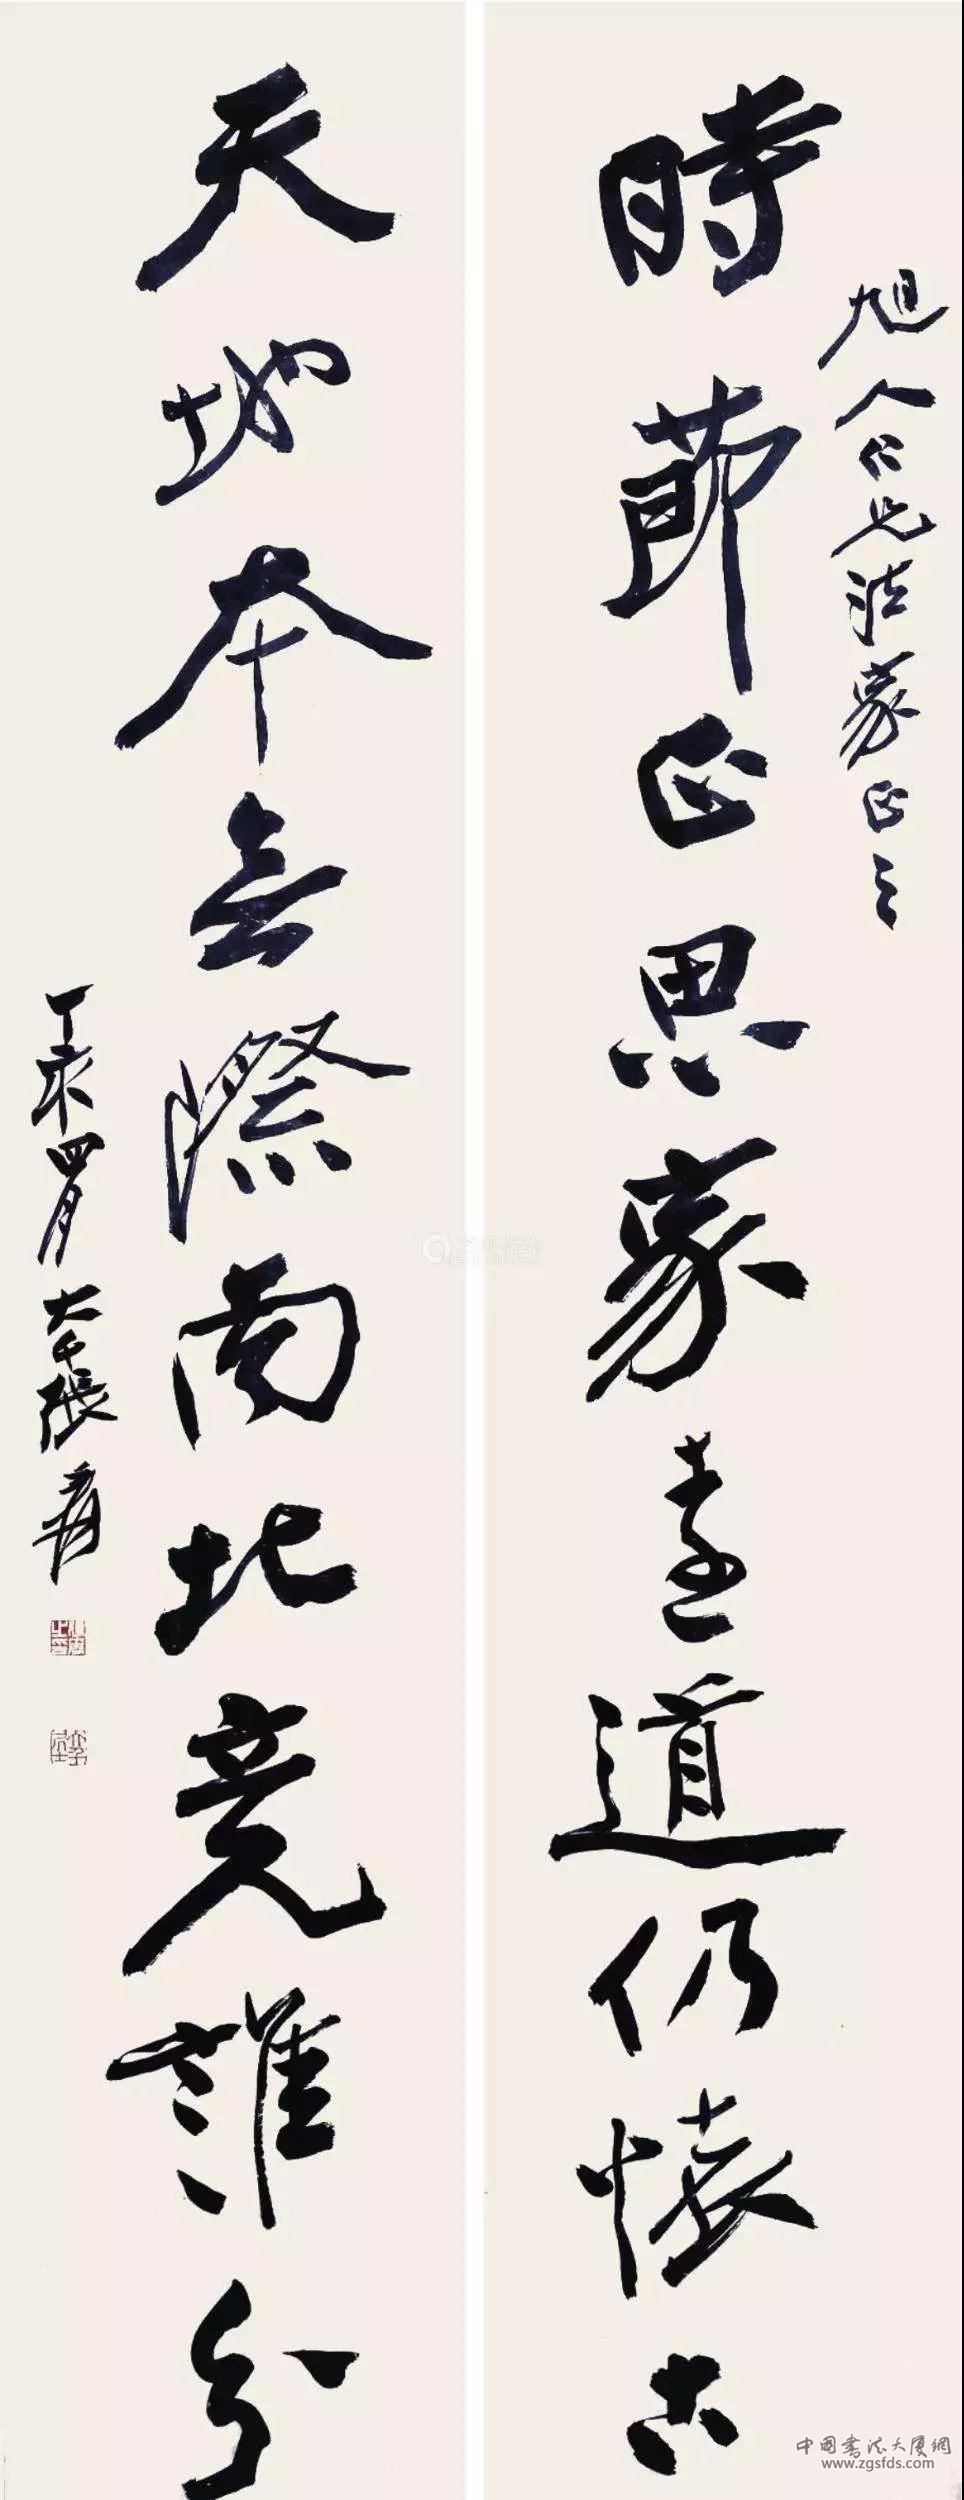 旭人仁兄法家正之
時節正思家遠道仍懷古
天地本無際南北竟誰分
丁未四月大千張爰
中國書法大厦網
www.zgsfds.com